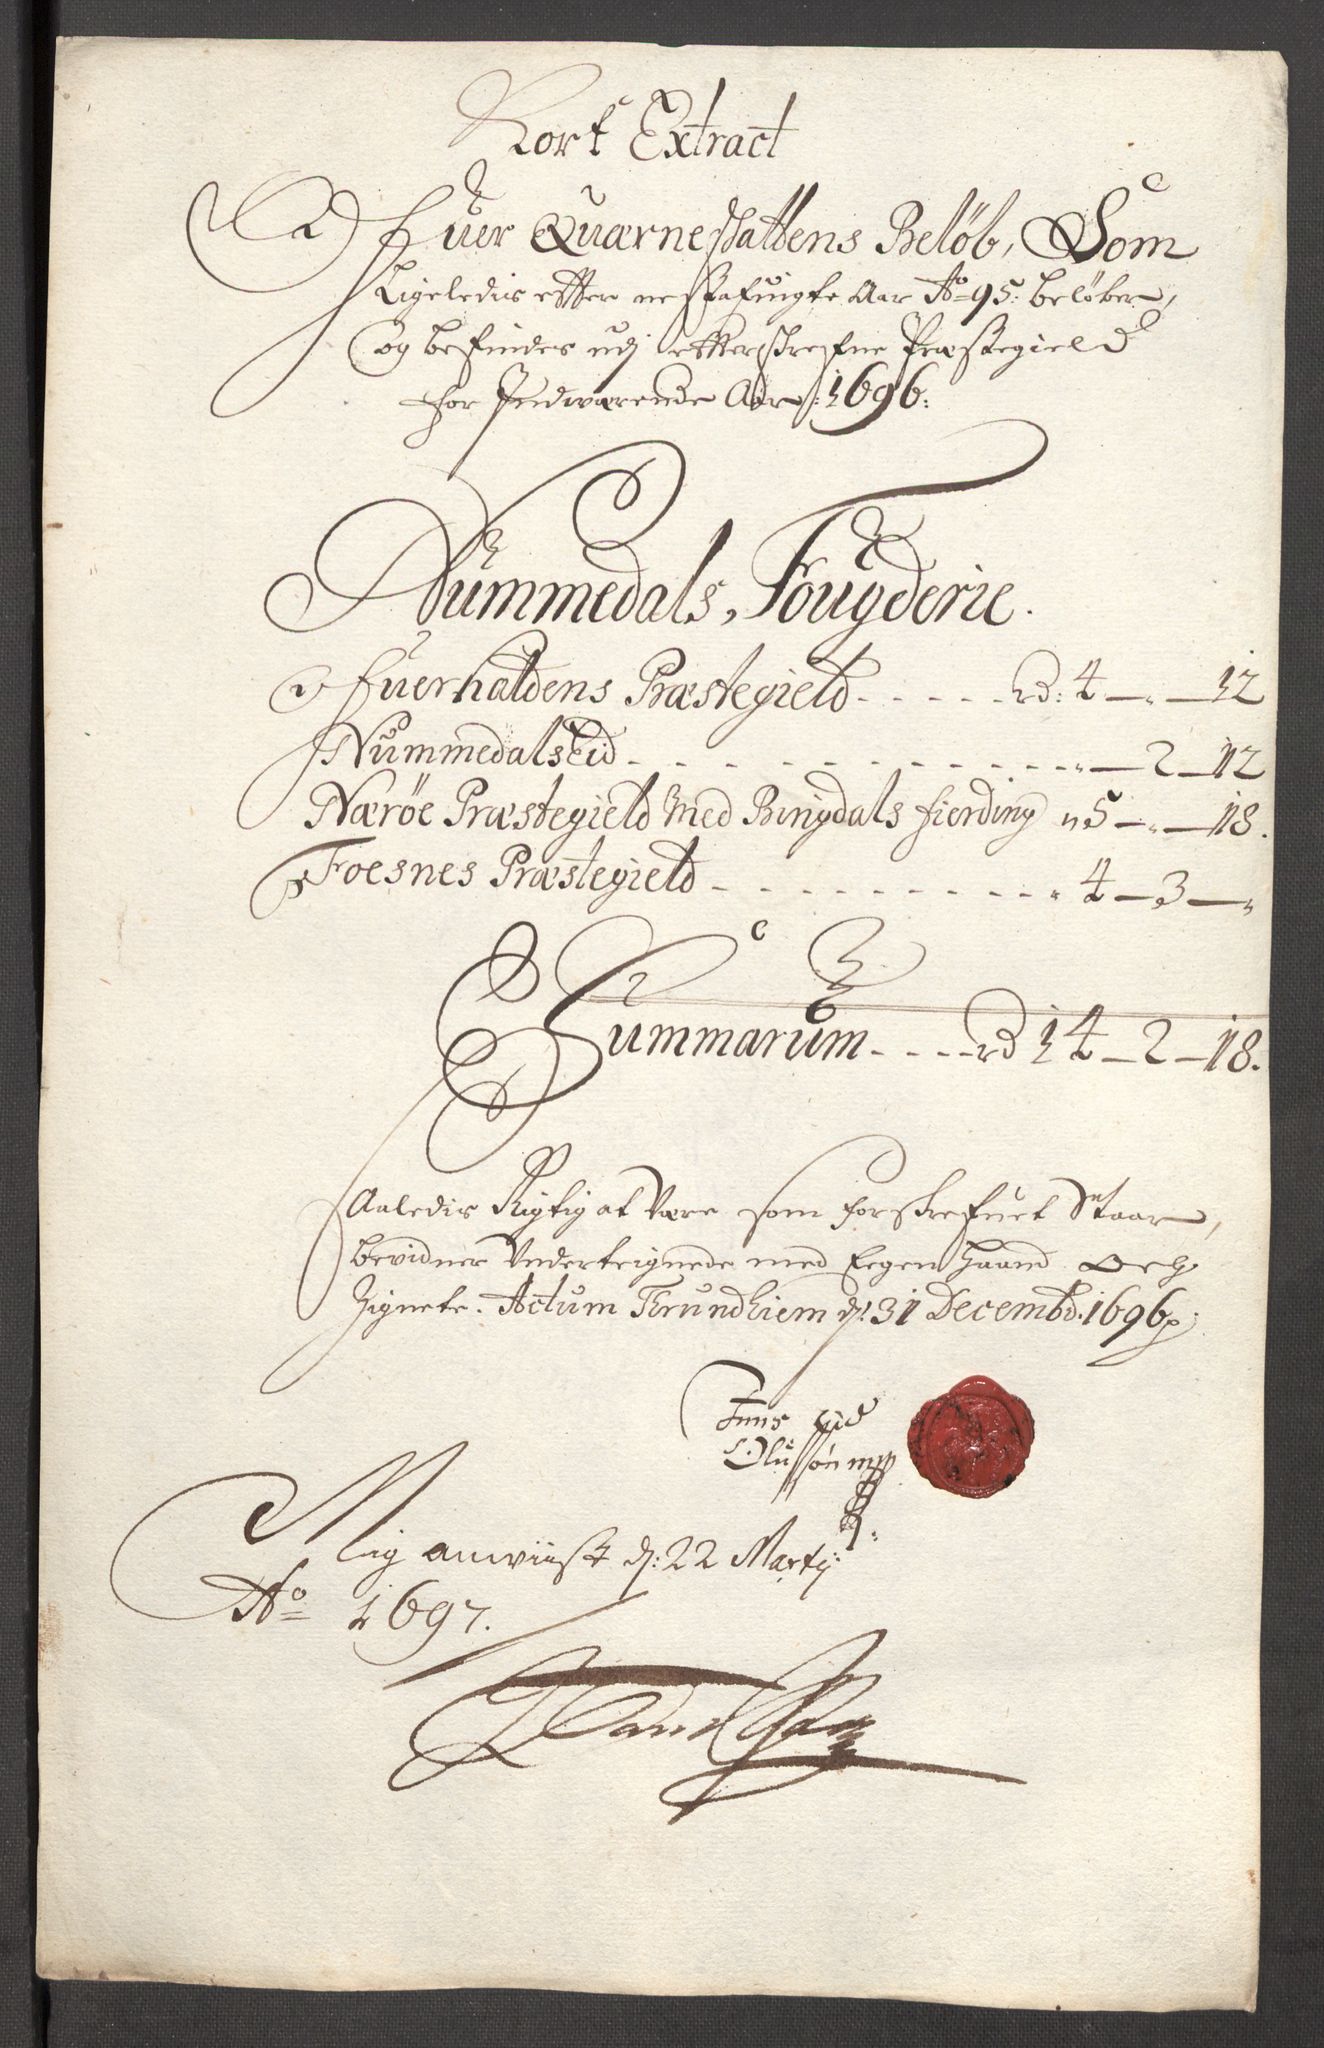 Kort Extract
Ofuer Quærneskattens Beløb, Som
Ligeledis effter nestafuigte Aar Ao 95: beløber,
og befindes udj effterschrefne Præstegield
for Indwærende Aar: 1696:
Nummedals, Fougderie.
Ofuerhaldens Præstegield - - - - - rd: 4 — " — 12
NummedalsEid - - - - - - - - - - - - " — 2 — 12
Nærøe Præstegield Med Bingdals fierding " 5 — " — 18.
Foesnes Præstegield - - - - - - - - - - " 4 — 3 — "
Summarum - - - - rd 14 — 2 — 18.
Aaledis Rigtig at Være som forschrefuet Staar,
bevidner Underteignede med Eegen haand och
Zignete. Actum Trundhiem d: 31 Decembr. 1696
Olufsøn mpp
Mig anwiist d: 22 Martij:
Ao 1697.